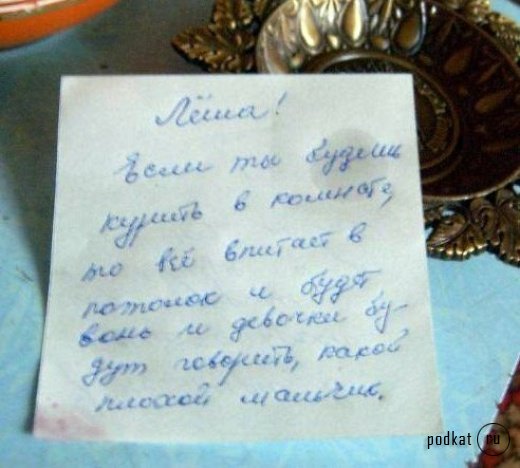 Лёша!
Если ты будешь
курить в комнате,
то всё впитает в
потолок и будет
вонь и девочки бу-
дут говорить, какой
плохой мальчик.
podkat ru